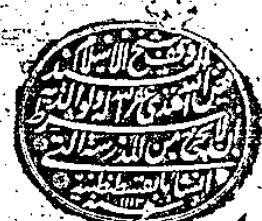 وقف شيخ الاسلام
فيض الله افندي غفر الله له ولوالديه
لا يخرج من المدرسة التي
انشأها بقسطنطنية
١١١٣